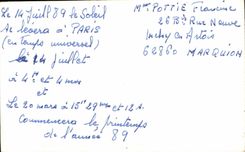 Le 14 Juillet 89 le Soleil
se lèvera à PARIS
(en temps universel)
le 14 Juillet
à 4h et 4mn
et
Le 20 mars à 15h 29mn et 12s.
Commencera le printemps
de l'année 89
Mme POTTIE Francine
26 Bis Rue Neuve
Inchy en Artois
62860 MARQUION